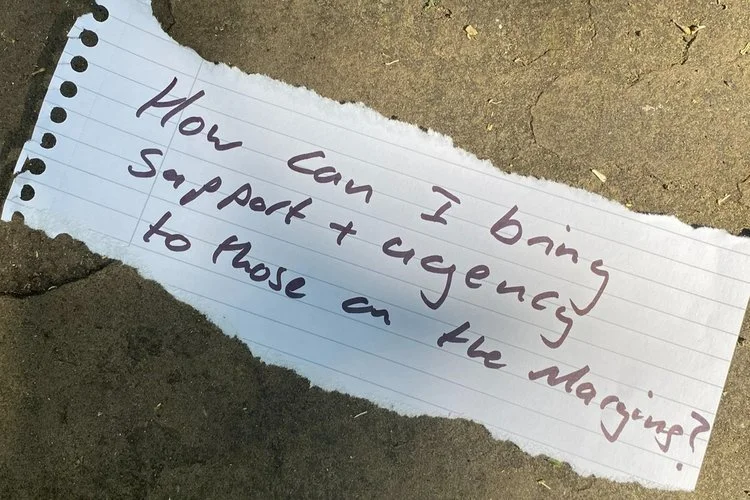 How can I bring
support + agency
to those on the margins?